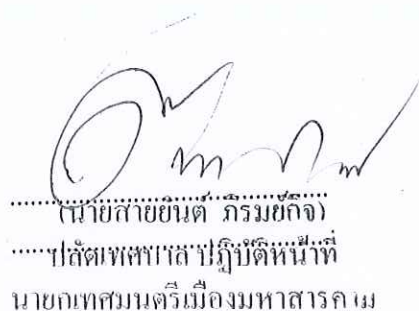 (นายสายยินต์ ภิรมย์กิจ)
ปลัดเทศบาล ปฏิบัติหน้าที่
นายกเทศมนตรีเมืองมหาสารคาม